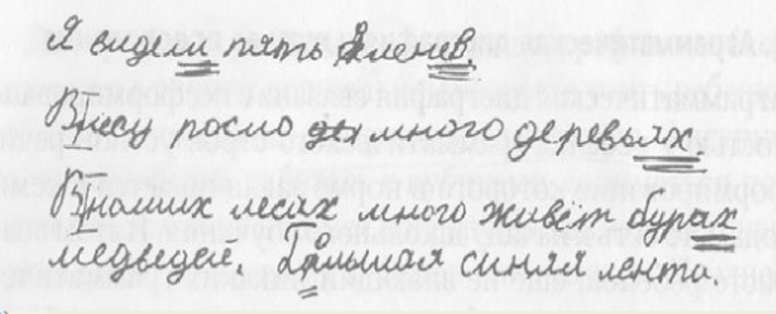 Я видем пять оленев.
В лесу росло много деревих.
В наших лесах много живёт бурах
медведей. Большая синяя лента.